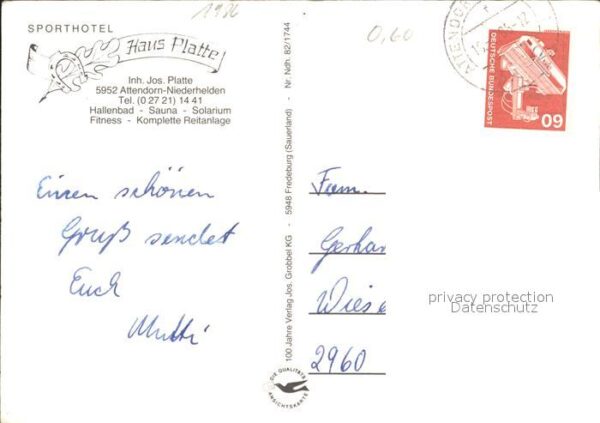 1986
SPORTHOTEL
Haus Platte!
Inh. Jos. Platte
5952 Attendorn-Niederhelden
Tel. (0 27 21) 14 41
Hallenbad - Sauna - Solarium
Fitness - Komplette Reitanlage
Einen schönen
Gruß sendet
Euch
Mutti
100 Jahre Verlag Jos. Grobbel KG - 5948 Fredeburg (Sauerland) - Nr. Ndh. 82/1744
DIE QUALITÄTS
ANSICHTSKARTE
0,60
ATTENDORN
DEUTSCHE BUNDESPOST
60
Fam.
Gerhar
Wiese
2960
privacy protection
Datenschutz